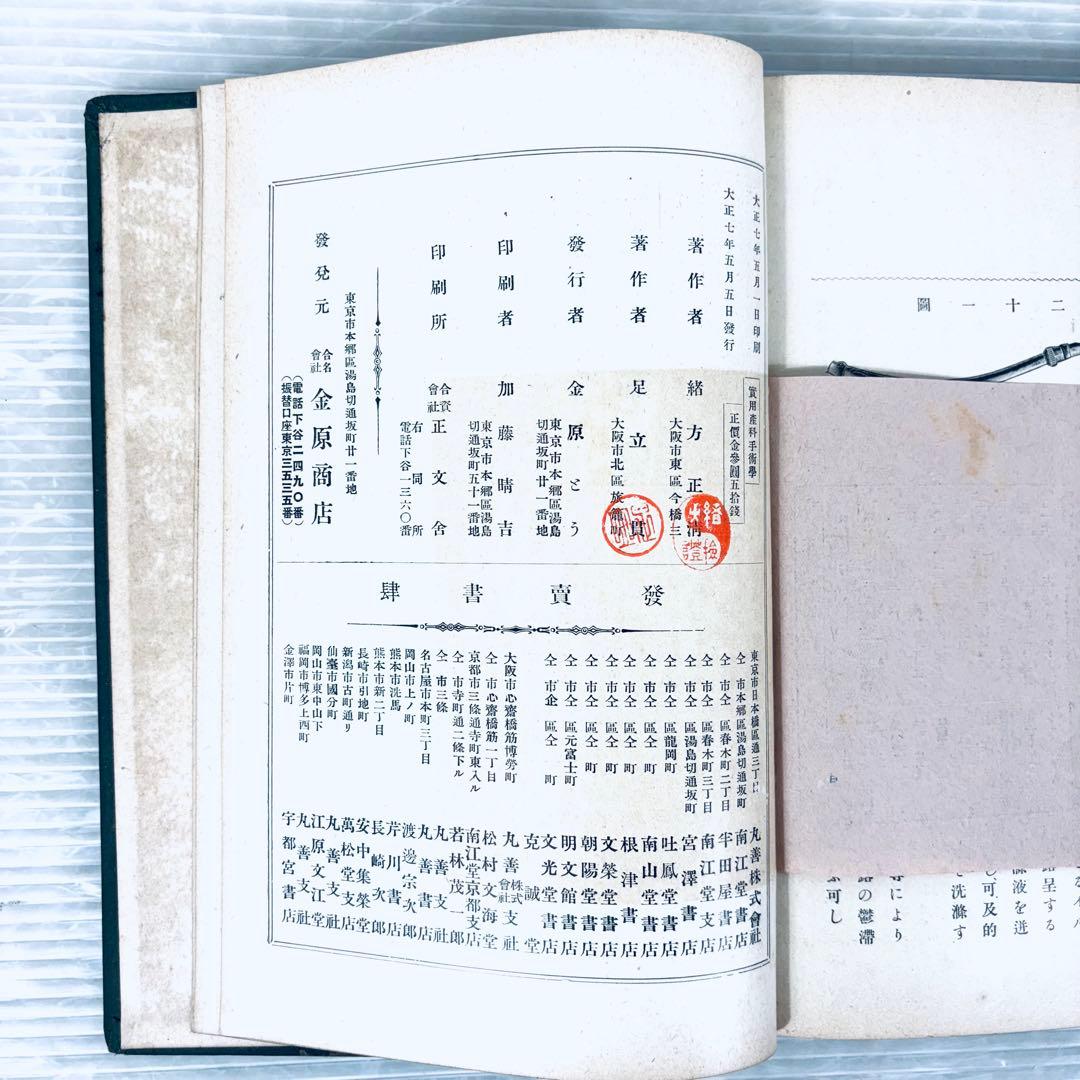 大正七年五月一日印刷
大正七年五月五日發行
實用產科手術學
正價金參圓五拾錢
著作者
緒方正淸
大阪市東區今橋三
著作者
足立
貫
大阪市北區旅籠町
發行者
金原とう
東京市本鄕區湯島
切通坂町廿一番地
印刷者
加藤晴吉
東京市本鄕區湯島
切通坂町五十一番地
印刷所
合資會社
正文舍
右同所
電話下谷一三六〇番
東京市本鄕區湯島切通坂町廿一番地
發兌元
合名會社
金原商店
(電話下谷二四九〇番)
(振替口座東京三五三五番)
發賣書肆
東京市日本橋區通三丁目 丸善株式會社
仝市本鄕區湯島切通坂町 南江堂書店
仝市仝區春木町二丁目 半田屋書店
仝市仝區春木町三丁目 南江堂支店
仝市仝區湯島切通坂町 宮澤書店
仝市仝區龍岡町 吐鳳堂書店
仝市仝區仝町 南山堂書店
仝市仝區仝町 根津書店
仝市仝區仝町 文榮堂書店
仝市仝區仝町 朝陽堂書店
仝市仝區元富士町 明文館書店
仝市仝區仝町 文光堂書店
克誠堂
大阪市心齋橋筋博勞町 丸善株式會社支社
仝市心齋橋筋一丁目 松村文海堂
京都市三條通寺町東入ル 南江堂京都支店
仝市寺町通二條下ル 若林茂一郎
仝市三條 丸善支社
名古屋市本町三丁目 丸善書店
岡山市上ノ町 渡邊宗次郎
熊本市洗馬 芹川書店
熊本市新二丁目 長崎次郎
長崎市引地町 安中集榮堂
新潟市古町通リ 萬松堂支店
仙臺市國分町 丸善支社
岡山市東中山下 江原文江堂
福岡市博多上西町 丸善支社
金澤市片町 宇都宮書店
二十一圖
路呈する
し可及的
尿液を迸
を洗滌す
により
路の鬱滯
可し